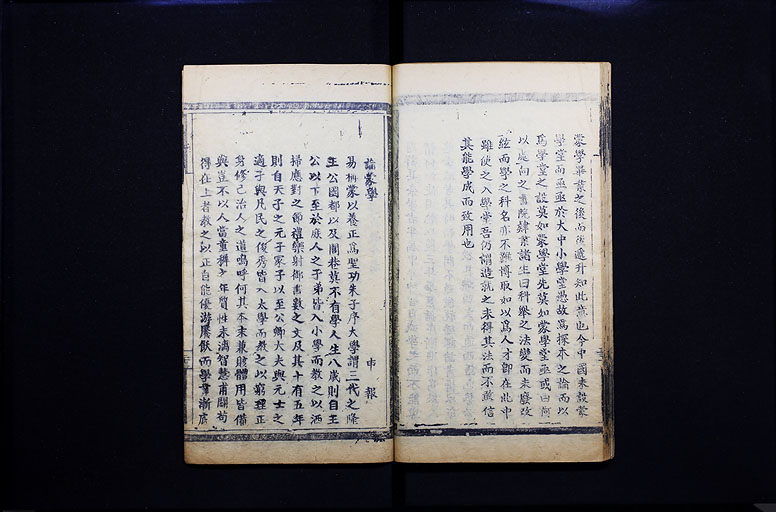 蒙學畢業之後而後遞升知此意也今中國未設蒙
學堂而亟亟於大中小學堂愚故爲探本之論而以
爲學堂之設莫如蒙學堂先莫如蒙學堂亟或曰何
以處向之書院肄業諸生曰科舉之法變而未廢改
絃而學之科名亦不難博取如以爲人才卽在此中
雖使之入學堂吾仍謂造就之未得其法而不敢信
其能學成而致用也
論蒙學
申報
易稱蒙以養正爲聖功朱子序大學謂三代之隆
王公國都以及閭巷莫不有學人生八歲則自王
公以下至於庶人之子弟皆入小學而教之以洒
掃應對之節禮樂射御書數之文及其十有五年
則自天子之元子衆子以至公卿大夫與元士之
適子與凡民之俊秀皆入太學而教之以窮理正
身修己治人之道嗚呼何其本末兼賅體用皆備
與豈不以人當童穉之年質性未漓智慧甫開苟
得在上者教之以正自能優游饜飫而學業漸底